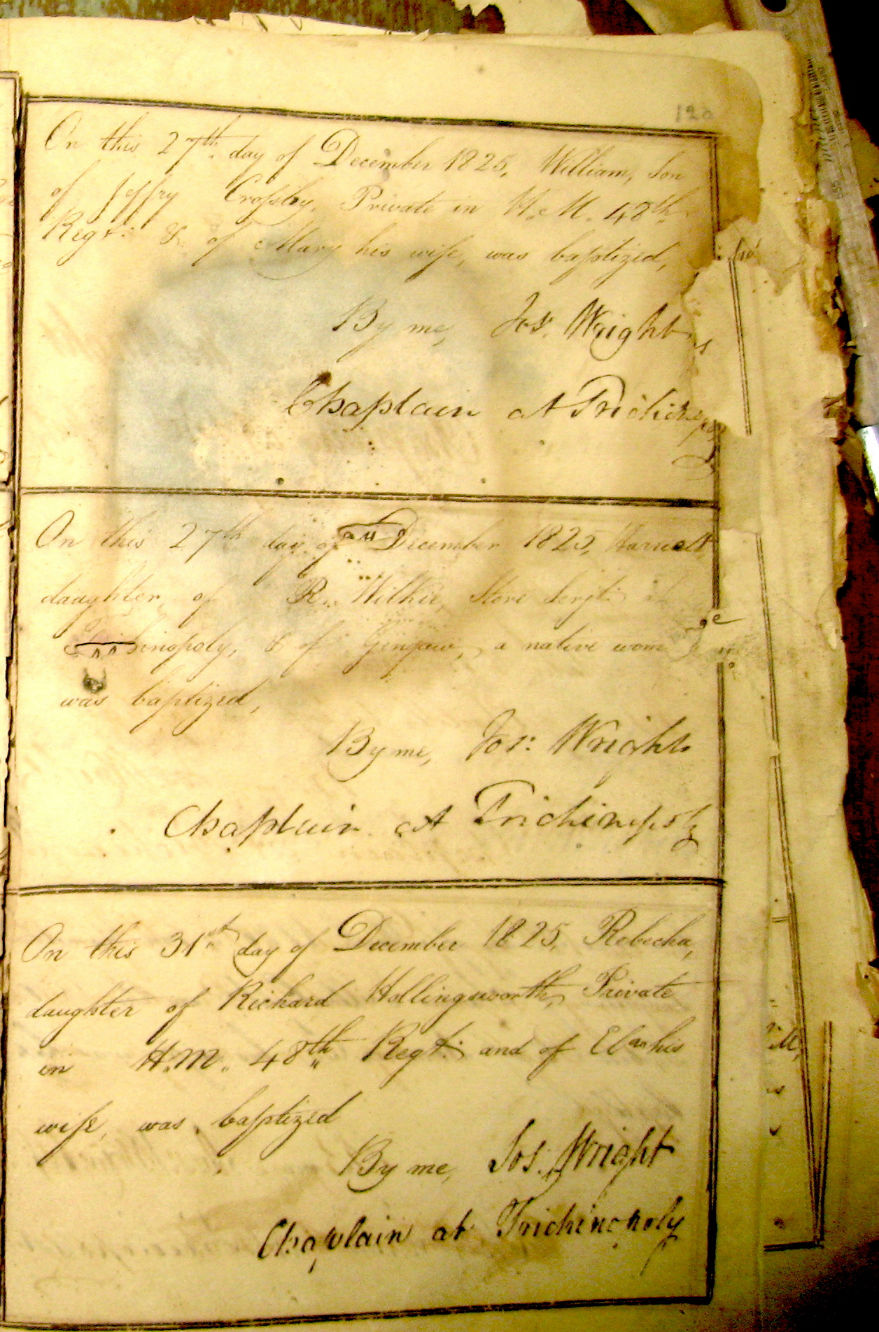 120
On this 27th day of December 1825, William, Son
of Jeffry Crossby, Private in H. M. 48th
Regt: & of Mary his wife, was baptized,
By me, Jos: Wright
Chaplain at Trichinop
On this 27th day of December 1825, Harriett
daughter of R. Wilkie, Store Sergt:
hinopoly, & of a native wom
was baptized,
By me, Jos: Wright
Chaplain at Trichinopoly
On this 31st day of December 1825, Rebecha,
daughter of Richard Hollingsworth, Private
in H.M. 48th Regt: and of his
wife, was baptized
By me, Jos: Wright
Chaplain at Trichinopoly